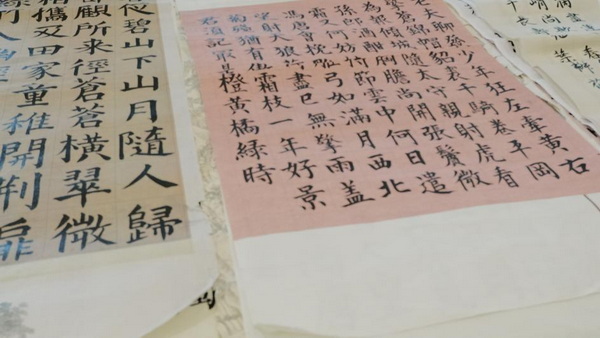 老夫聊發少年狂左牽黃右
擎蒼錦帽貂裘千騎卷平岡
為報傾城隨太守親射虎看
孫郎酒酣胸膽尚開張鬢微
霜又何妨持節雲中何日遣
馮唐會挽雕弓如滿月西北
望射天狼荷盡已無擎雨蓋
菊殘猶有傲霜枝一年好景
君須記最是橙黃橘綠時
從碧山下山月隨人歸
顧所來徑蒼蒼橫翠微
相攜及田家童稚開荊扉